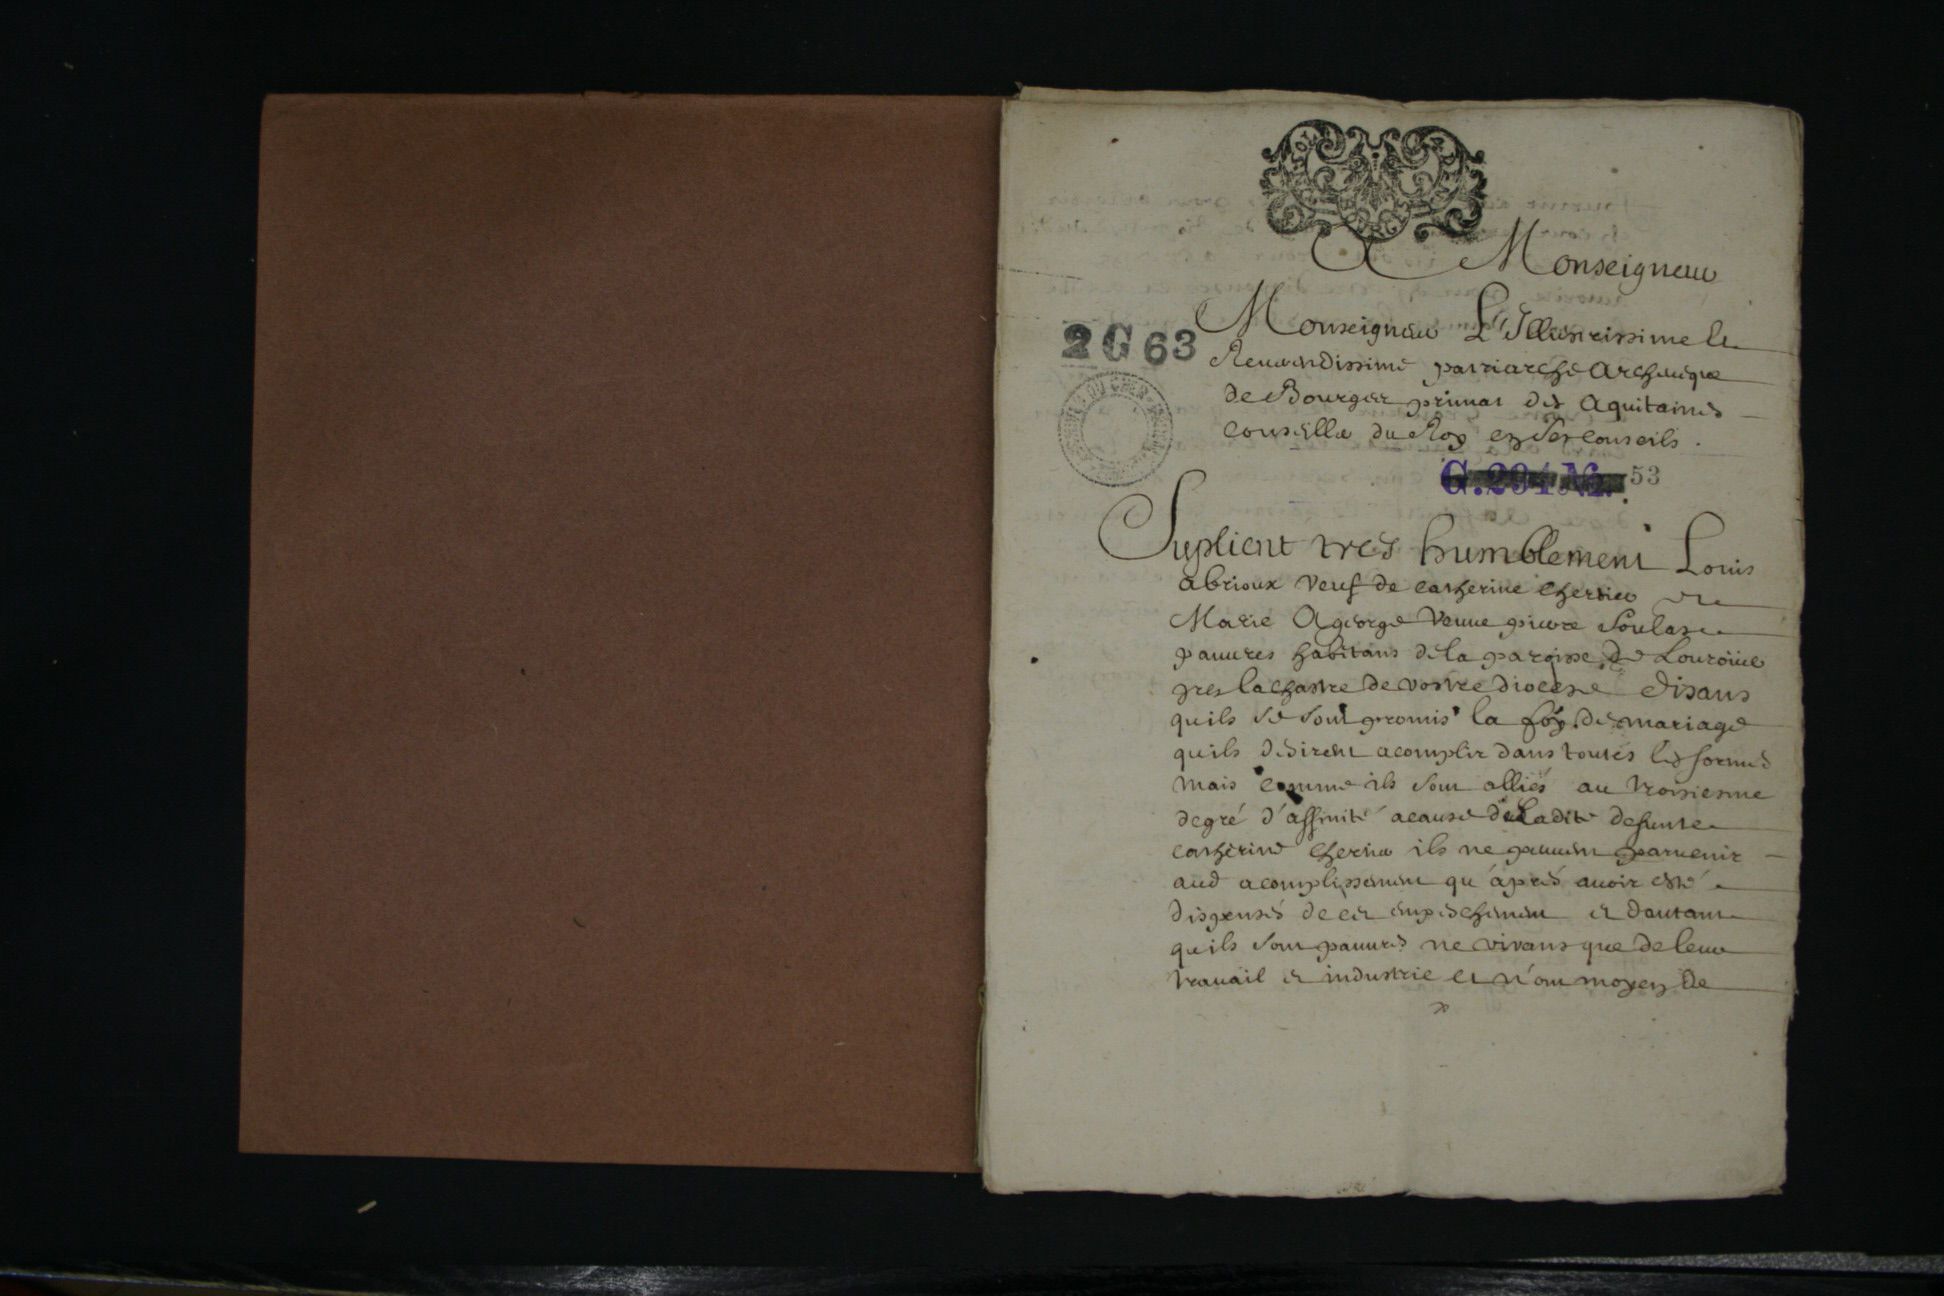 A Monseigneur
Monseigneur L'Illustrissime et
Reuerendissime patriarche archeuesque
de Bourges primat des aquitaines
conseiller du Roy en ses conseils .
2 G 63
G. 294 No. 53
Suplient tres humblement Louis
abrioux veuf de catherine Chertier et
Marie Ageorge veuue pierre Soulas
pauures habitans de la paroisse de Lourouer
pres la chastre de vostre diocese disans
quils se sont promis la foy de mariage
quils desirent acomplir dans toutes les formes
mais comme ils sont alliés au troisiesme
degré d'affinité a cause de ladite defunte
catherine Chertier ils ne peuuent paruenir
aud acomplissement qu'après auoir esté
dispensés de cet empeschement et dautant
quils sont pauures ne vivans que de leur
trauail et industrie et n'ont moyen de